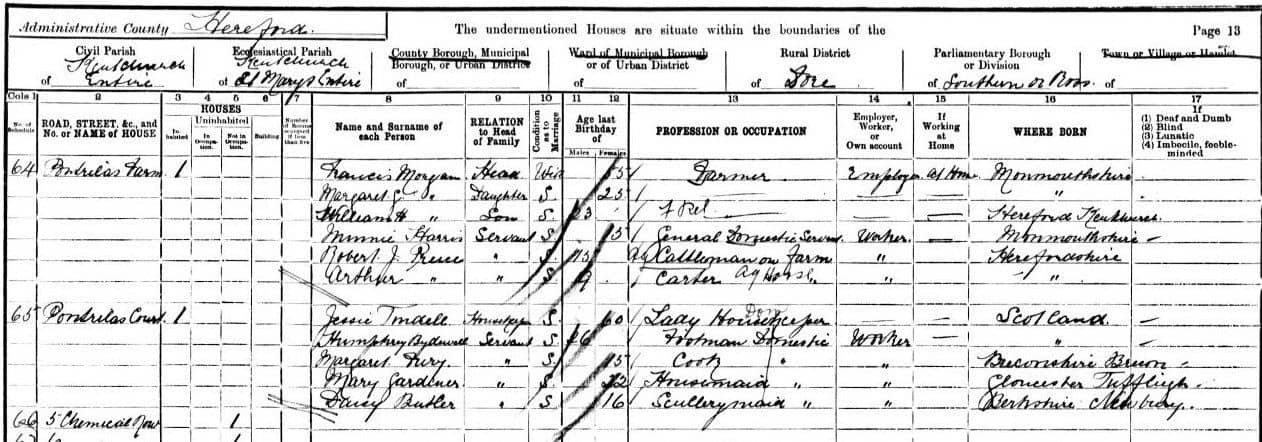 Administrative County Hereford. The undermentioned Houses are situate within the boundaries of the Page 13
Civil Parish Ecclesiastical Parish County Borough, Municipal Ward of Municipal Borough Rural District Parliamentary Borough Town or Village or Hamlet
Kentchurch Kentchurch Borough, or Urban District or of Urban District or Division
of Entire of St Marys Entire of of of Dore of Southern or Ross of
Cols 1 2 3 4 5 6 7 8 9 10 11 12 13 14 15 16 17
No. of Schedule ROAD, STREET, &c., and No. or NAME of HOUSE HOUSES Inhabited Uninhabited In Occupation. Not in Occupation. Building Number of Rooms occupied if less than five Name and Surname of each Person RELATION to Head of Family Condition as to Marriage Age last Birthday of Males Females PROFESSION OR OCCUPATION Employer, Worker, or Own account If Working at Home WHERE BORN If (1) Deaf and Dumb (2) Blind (3) Lunatic (4) Imbecile, feeble-minded
64 Pontrilas Farm 1 Francis Morgan Head Wid 55 Farmer Employer at Home Monmouthshire
Margaret " Daughter S. 25 — — "
William H " Son S. 23 — — Hereford Kentchurch
Minnie Harris Servant S General Domestic Servant Worker — Monmouthshire —
Robert J. " S Cattleman on Farm " Herefordshire
Arthur " " S Carter "  "
65 Pontrilas Court 1 Jessie Housekeeper S. 60 Lady Housekeeper Dom — Scotland. —
Humphrey Servant S. Footman Domestic Worker — " —
Margaret " S. Cook " " Breconshire
Mary Gardener " S. Housemaid " " Gloucester Tuffligh
Daisy Butler " S 16 Scullerymaid " " Berkshire Newbury
66 5 Chemical Row 1